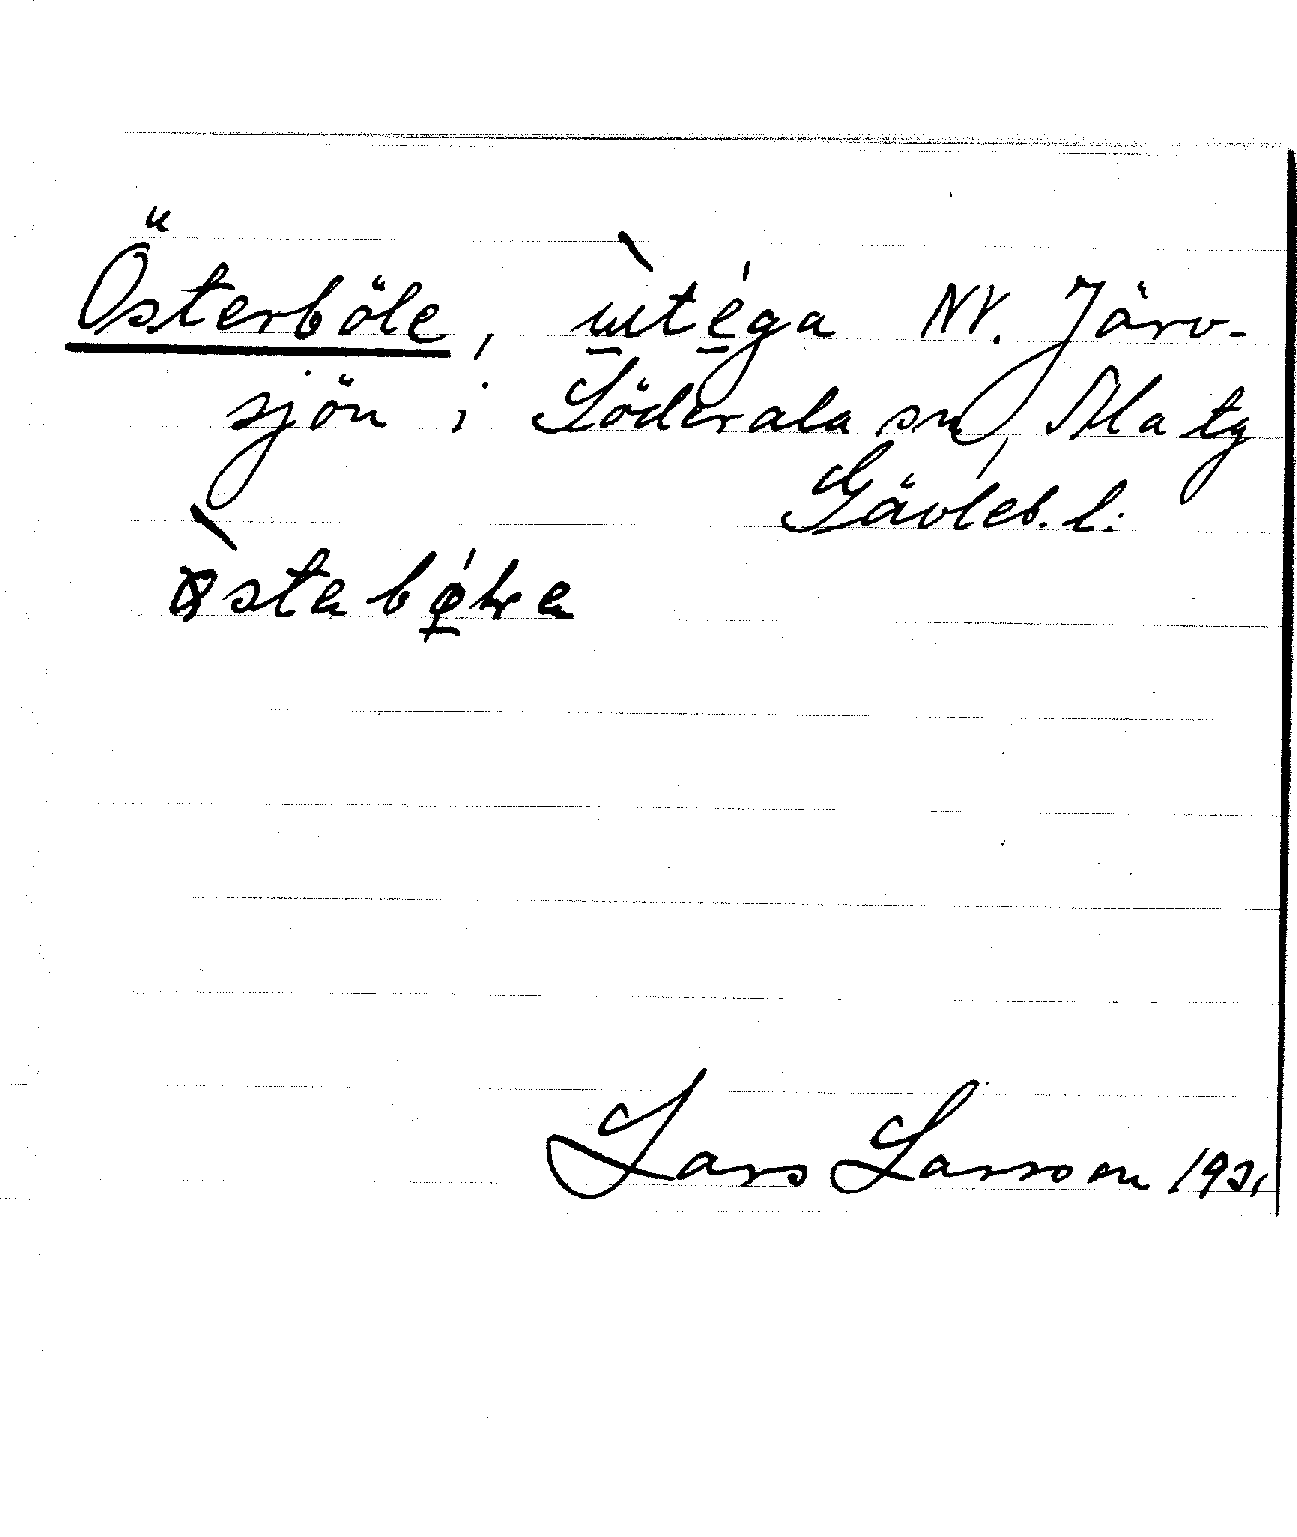 Österböle, ùtéga NV. Järv-
sjön i Söderala sn, Ala tg
Gävleb. l.
Lars Larsson 1921